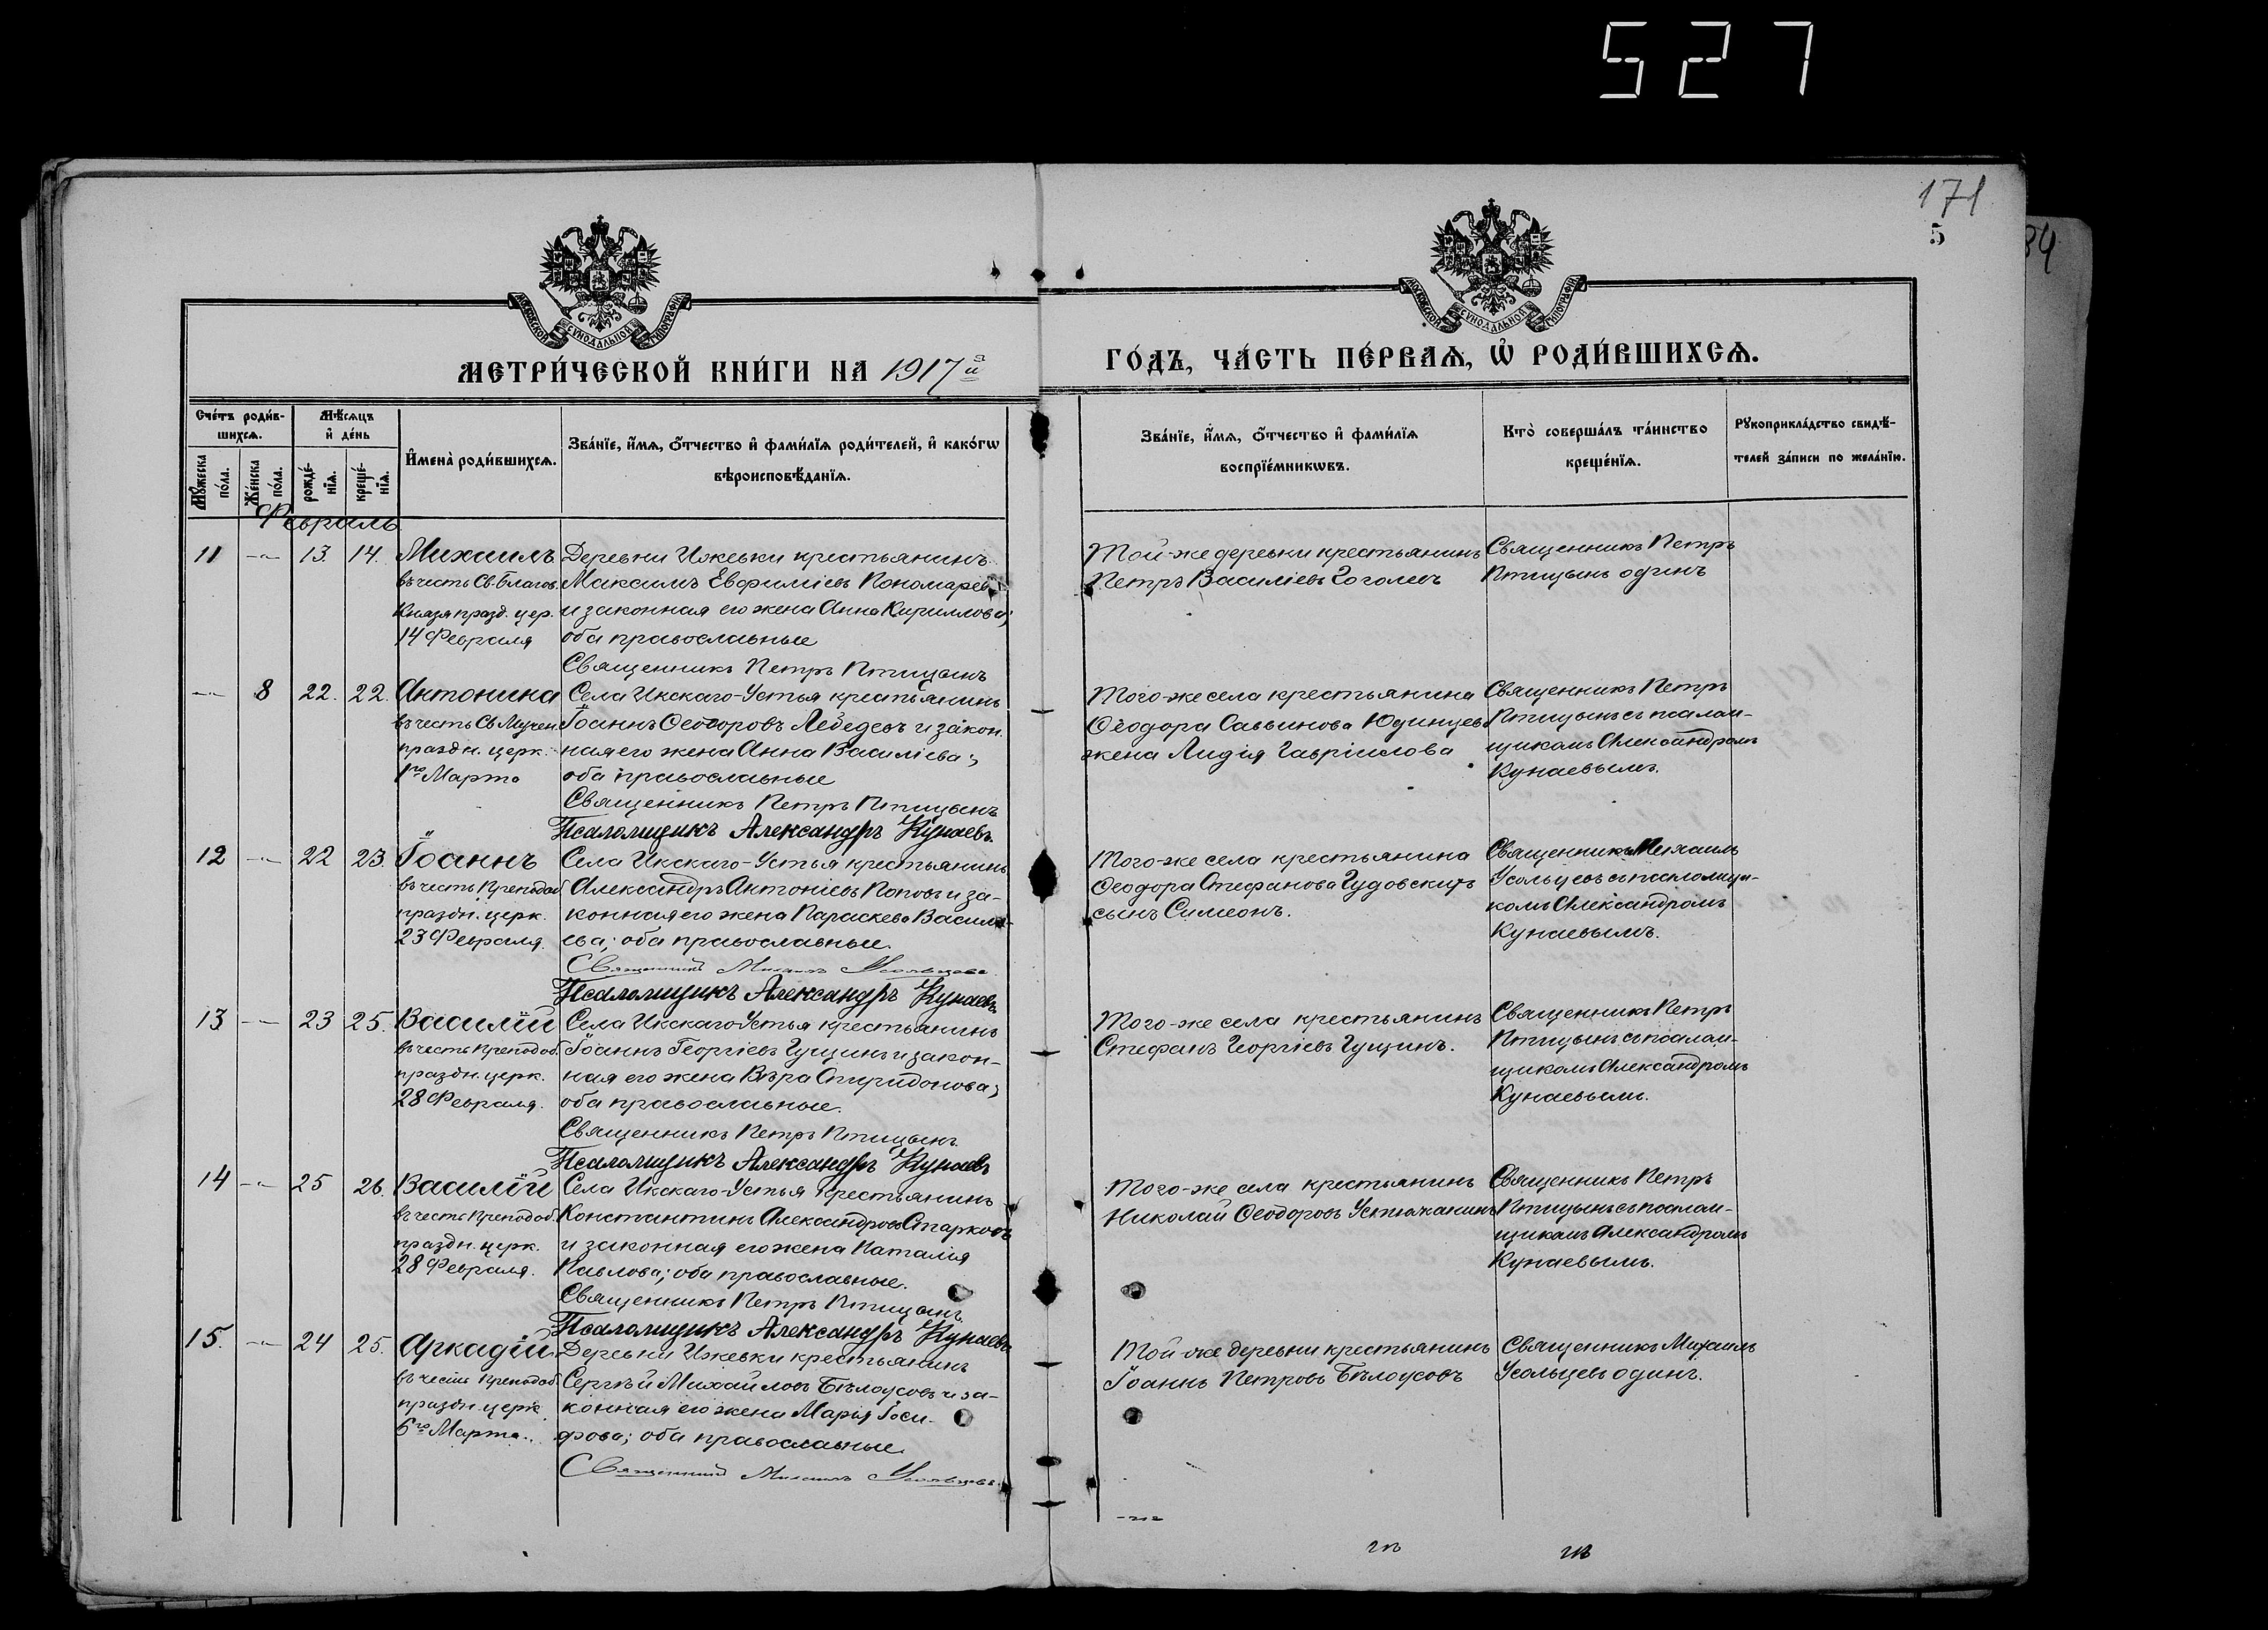 527
171
5
34
МОСКОВСКОЙ СѴНОДАЛЬНОЙ ТИПОГРАФІИ
МОСКОВСКОЙ СѴНОДАЛЬНОЙ ТИПОГРАФІИ
МЕТРИ́ЧЕСКОЙ КНИ́ГИ НА 1917й
ГО́ДЪ, ЧА́СТЬ ПЕ́РВАѦ, Ѡ҆ РОДИ́ВШИХСѦ.
Сче́тъ роди́в-
шихсѧ.
Мѣ́сѧцъ
и҆ де́нь
Мꙋ́жеска по́ла.
Же́нска по́ла.
рожде́-нїѧ.
креще́-нїѧ.
И҆мена̀ роди́вшихсѧ.
Зва́нїе, и҆́мѧ, ѻ҆́тчество и҆ фами́лїѧ роди́телей, и҆ како́гѡ
вѣроисповѣ́данїѧ.
Зва́нїе, и҆́мѧ, ѻ҆́тчество и҆ фами́лїѧ
воспрїе́мникѡвъ.
Кто̀ соверша́лъ та́инство
креще́нїѧ.
Рꙋкоприкла́дство свидѣ́-
телей за́писи по жела́нїю.
Февраль
11 — 13. 14. Михаилъ
въ честь Св. Благов.
Князя празд. цер.
14 Февраля
Деревни Ижевки крестьянинъ
Максимъ Евфиміевъ Пономаревъ
и законная его жена Анна Кириллова;
оба православные
Священникъ Петръ Птицынъ
Той-же деревни крестьянинъ
Петръ Василіевъ Гоголевъ
Священникъ Петръ
Птицынъ одинъ
— 8 22. 22. Антонина
въ честь Св. Мучен.
праздн. церк.
1го Марта
Села Икскаго-Устья крестьянинъ
Іоаннъ Ѳеодоровъ Лебедевъ и закон.
ная его жена Анна Василіева;
оба православные
Священникъ Петръ Птицынъ
Псаломщикъ Александръ Кунаевъ.
Того-же села крестьянина
Ѳеодора Саввинова Юдинцева
жена Лидія Гавріилова
Священникъ Петръ
Птицынъ съ псалом-
щикомъ Александромъ
Кунаевымъ.
12 — 22 23. Іоаннъ
въ честь Преподоб.
праздн. церк.
23 Февраля.
Села Икскаго-Устья крестьянинъ
Александръ Антоніевъ Поповъ и за-
конная его жена Параскева Василі-
ева; оба православные.
Священникъ Михаилъ Усольцевъ
Псаломщикъ Александръ Кунаевъ
Того-же села крестьянина
Ѳеодора Стефанова Гудовскихъ
сынъ Симеонъ.
Священникъ Михаилъ
Усольцевъ съ псаломщи-
комъ Александромъ
Кунаевымъ.
13 — 23 25. Василій
въ честь Преподоб.
праздн. церк.
28 Февраля.
Села Икскаго-Устья крестьянинъ
Іоаннъ Георгіевъ Гущинъ и закон-
ная его жена Вѣра Спиридонова;
оба православные.
Священникъ Петръ Птицынъ
Псаломщикъ Александръ Кунаевъ
Того-же села крестьянинъ
Стефанъ Георгіевъ Гущинъ.
Священникъ Петръ
Птицынъ съ псалом-
щикомъ Александромъ
Кунаевымъ.
14 — 25 26. Василій
въ честь Преподоб.
праздн. церк.
28 Февраля.
Села Икскаго-Устья крестьянинъ
Константинъ Александровъ Старковъ
и законная его жена Наталія
Павлова; оба православные.
Священникъ Петръ Птицынъ
Псаломщикъ Александръ Кунаевъ
Того-же села крестьянинъ
Николай Ѳеодоровъ Устюжанинъ
Священникъ Петръ
Птицынъ съ псалом-
щикомъ Александромъ
Кунаевымъ.
15. — 24 25. Аркадій
въ честь Преподоб.
праздн. церк
6го Марта.
Деревни Ижевки крестьянинъ
Сергѣй Михайловъ Бѣлоусовъ и за-
конная его жена Марія Іоси-
фова; оба православные.
Священникъ Михаилъ Усольцевъ
Той-же деревни крестьянинъ
Іоаннъ Петровъ Бѣлоусовъ
Священникъ Михаилъ
Усольцевъ одинъ.